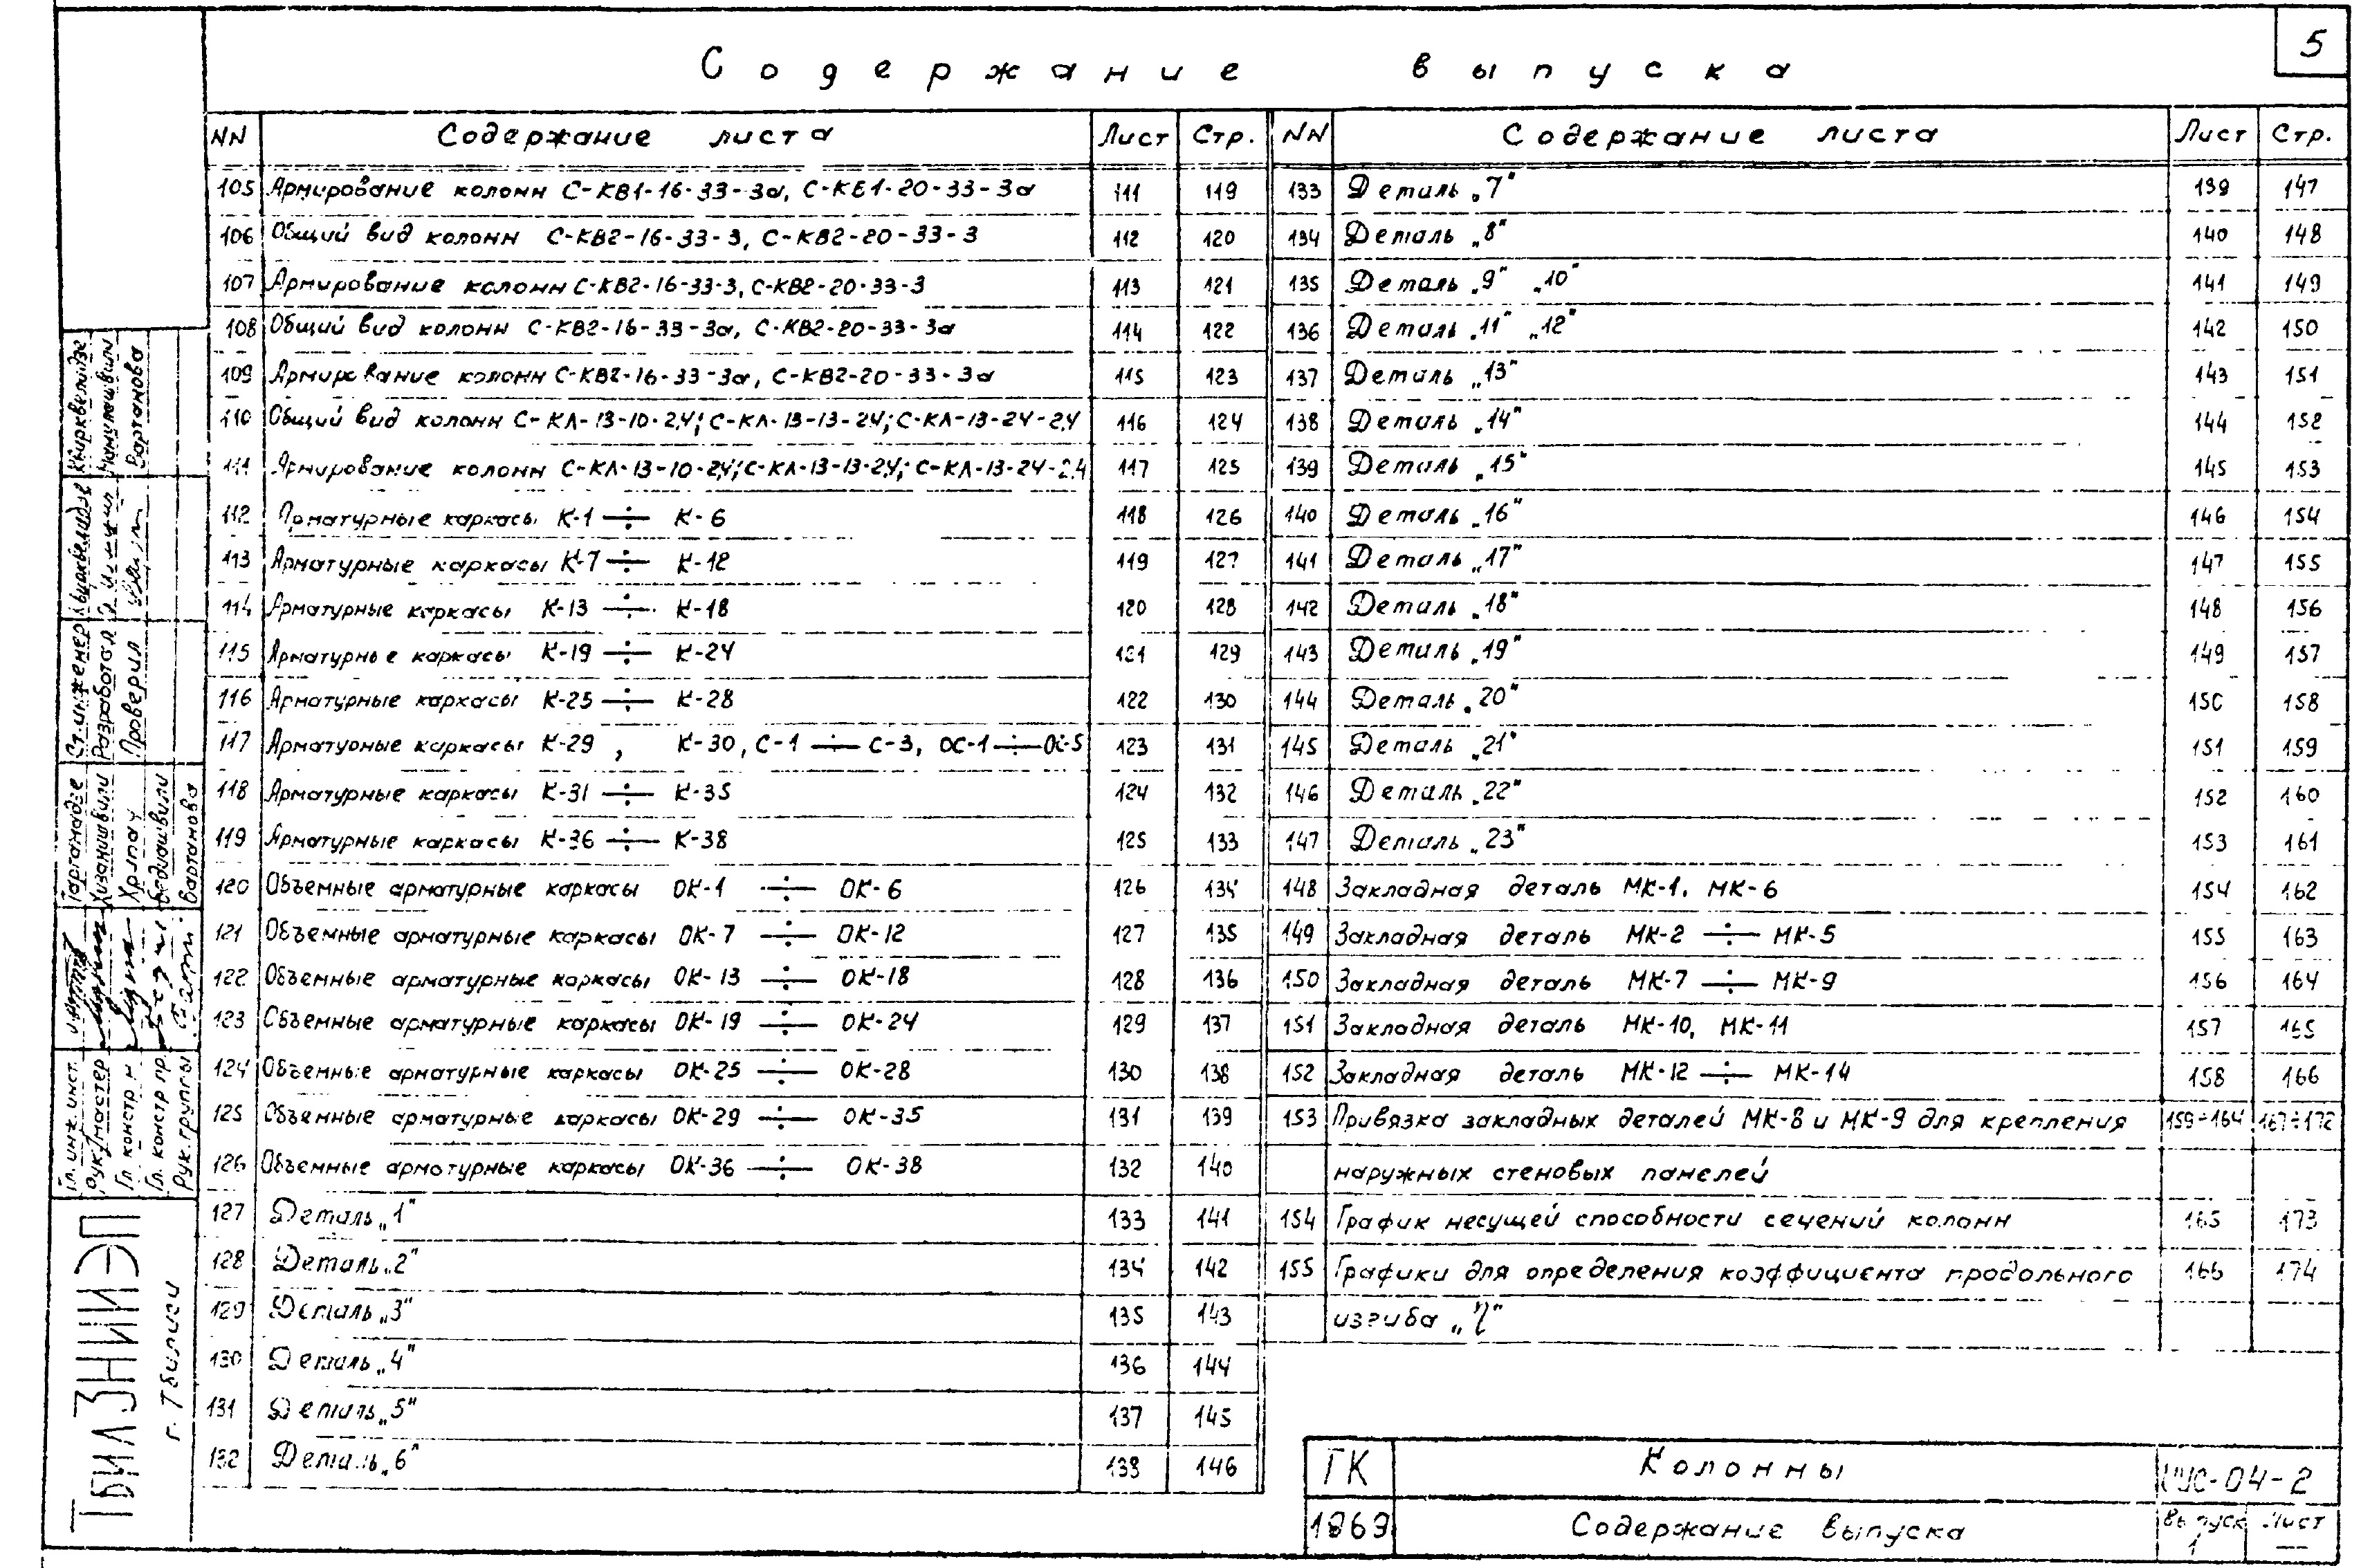 5
Содержание выпуска
NN Содержание листа Лист Стр.
105 Армирование колонн С-КВ1-16-33-3а, С-КВ1-20-33-3а 111 119
106 Общий вид колонн С-КВ2-16-33-3, С-КВ2-20-33-3 112 120
107 Армирование колонн С-КВ2-16-33-3, С-КВ2-20-33-3 113 121
108 Общий вид колонн С-КВ2-16-33-3а, С-КВ2-20-33-3а 114 122
109 Армирование колонн С-КВ2-16-33-3а, С-КВ2-20-33-3а 115 123
110 Общий вид колонн С-КЛ-13-10-24; С-КЛ-13-13-24; С-КЛ-13-24-24 116 124
111 Армирование колонн С-КЛ-13-10-24; С-КЛ-13-13-24; С-КЛ-13-24-24 117 125
112 Арматурные каркасы К-1 ÷ К-6 118 126
113 Арматурные каркасы К-7 ÷ К-12 119 127
114 Арматурные каркасы К-13 ÷ К-18 120 128
115 Арматурные каркасы К-19 ÷ К-24 121 129
116 Арматурные каркасы К-25 ÷ К-28 122 130
117 Арматурные каркасы К-29 , К-30, С-1 ÷ С-3, ОС-1 ÷ ОС-5 123 131
118 Арматурные каркасы К-31 ÷ К-35 124 132
119 Арматурные каркасы К-36 ÷ К-38 125 133
120 Объемные арматурные каркасы ОК-1 ÷ ОК-6 126 134
121 Объемные арматурные каркасы ОК-7 ÷ ОК-12 127 135
122 Объемные арматурные каркасы ОК-13 ÷ ОК-18 128 136
123 Объемные арматурные каркасы ОК-19 ÷ ОК-24 129 137
124 Объемные арматурные каркасы ОК-25 ÷ ОК-28 130 138
125 Объемные арматурные каркасы ОК-29 ÷ ОК-35 131 139
126 Объемные арматурные каркасы ОК-36 ÷ ОК-38 132 140
127 Деталь „1" 133 141
128 Деталь „2" 134 142
129 Деталь „3" 135 143
130 Деталь „4" 136 144
131 Деталь „5" 137 145
132 Деталь „6" 138 146
NN Содержание листа Лист Стр.
133 Деталь „7" 139 147
134 Деталь „8" 140 148
135 Деталь „9" „10" 141 149
136 Деталь „11" „12" 142 150
137 Деталь „13" 143 151
138 Деталь „14" 144 152
139 Деталь „15" 145 153
140 Деталь „16" 146 154
141 Деталь „17" 147 155
142 Деталь „18" 148 156
143 Деталь „19" 149 157
144 Деталь „20" 150 158
145 Деталь „21" 151 159
146 Деталь „22" 152 160
147 Деталь „23" 153 161
148 Закладная деталь МК-1, МК-6 154 162
149 Закладная деталь МК-2 ÷ МК-5 155 163
150 Закладная деталь МК-7 ÷ МК-9 156 164
151 Закладная деталь МК-10, МК-11 157 165
152 Закладная деталь МК-12 ÷ МК-14 158 166
153 Привязка закладных деталей МК-8 и МК-9 для крепления 159÷164 167÷172
наружных стеновых панелей
154 График несущей способности сечений колонн 165 173
155 Графики для определения коэффициента продольного 166 174
изгиба „η"
ТК Колонны ИИС-04-2
1969 Содержание выпуска Выпуск 1 Лист —
ТбилЗНИИЭП
г. Тбилиси
Гл. инж. инст. Таргамадзе
Рук. мастер. Хизанишвили
Гл. констр. м.
Гл. констр. пр. Бедиашвили
Рук. группы Вартанова
Ст. инженер Квирквелидзе
Разработал
Проверил Вартанова